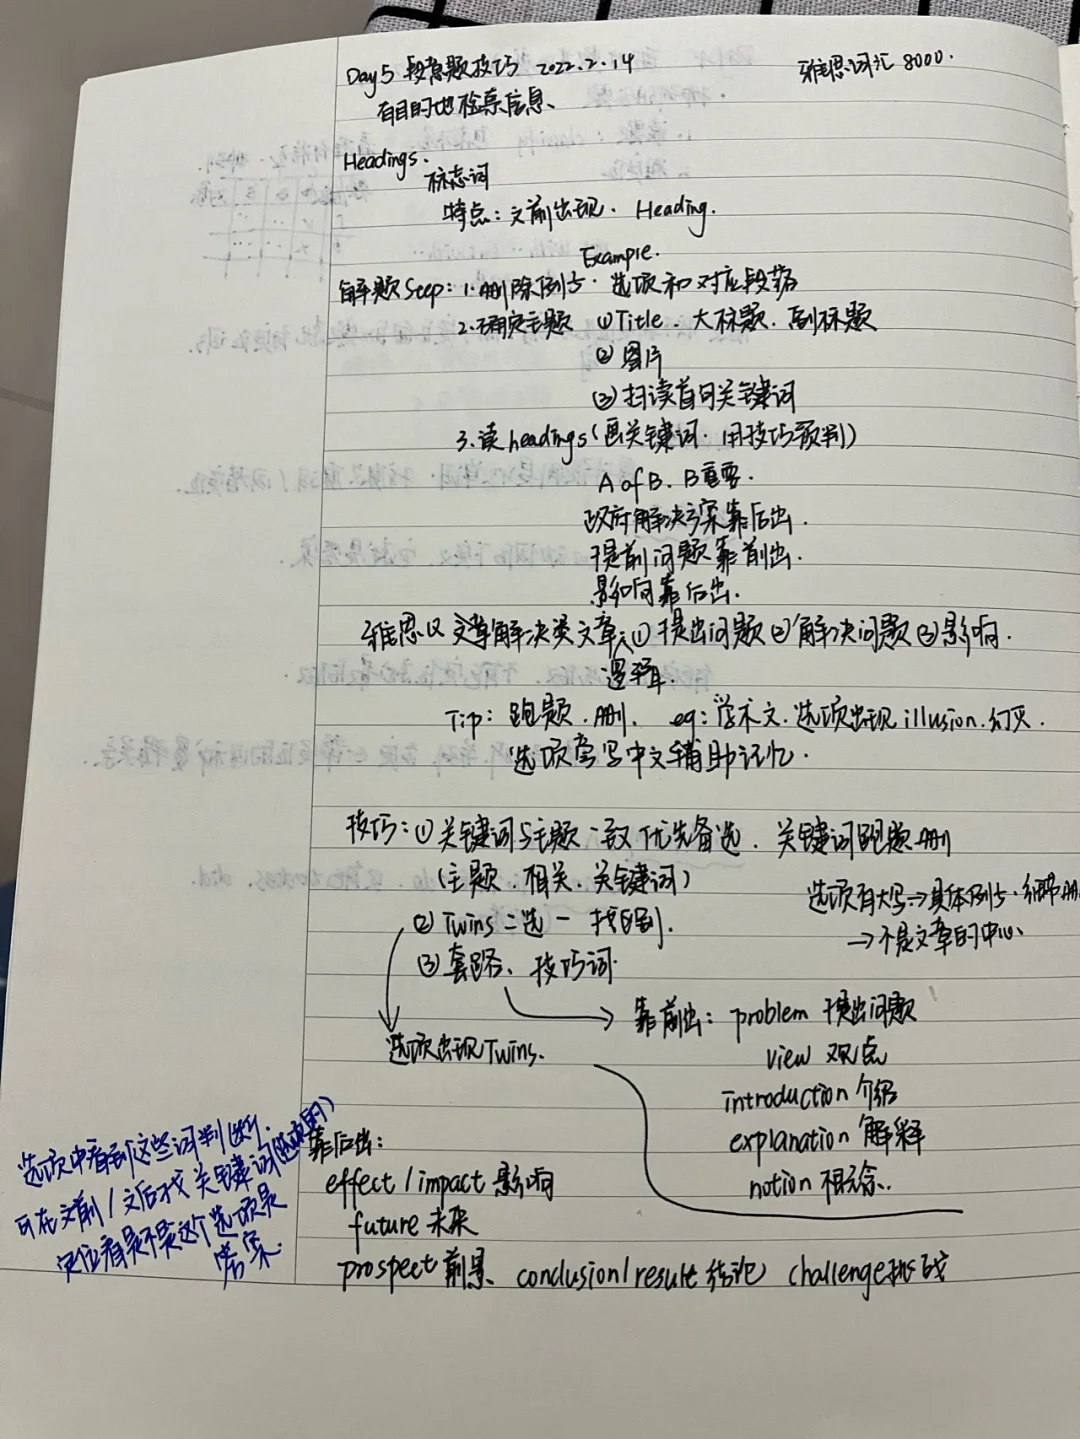 Day5 段意题技巧 2022.2.14
雅思词汇 8000.
有目的地检索信息、
Headings.
标志词
特点:文前出现. Heading.
Example.
解题Step: 1.删除例子. 选项和对应段落
2.确定主题 ①Title. 大标题. 副标题
②图片
③扫读首句关键词
3.读headings(画关键词. 用技巧预判)
A of B. B重要.
政府解决方案靠后出.
提前问题靠前出.
影响靠后出.
雅思议文章解决类文章 ①提出问题②解决问题③影响.
逻辑.
Tip: 跑题.删. eg:学术文.选项出现illusion.幻灭.
选项旁写中文辅助记忆.
技巧:①关键词与主题一致优先备选. 关键词跑题.删
(主题.相关.关键词)
选项有大写→具体例子.细节删
→不是文章的中心、
②Twins 二选一 找区别.
③套路、技巧词.
靠前出: problem 提出问题
选项出现Twins.
view 观点
introduction 介绍
explanation 解释
notion 概念.
选项中看到这些词判断.
可在文前/文后找关键词(选项的)
定位看是不是这个选项是
答案.
靠后出:
effect/impact 影响
future 未来
prospect 前景、 conclusion/result 结论 challenge 挑战